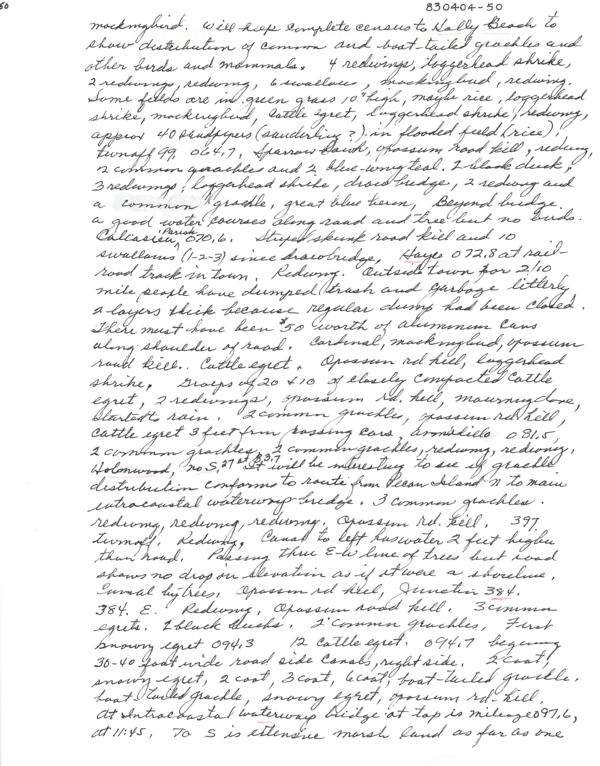 50
830404-50
mockingbird. Will keep complete census to Holly Beach to
show distribution of common and boat-tailed grackles and
other birds and mammals. 4 redwings, loggerhead shrike,
2 redwings, redwing, 6 swallows, mockingbird, redwing.
Some fields are in green grass 10" high, maybe rice, loggerhead
shrike, mockingbird, cattle egret, loggerhead shrike, redwing,
approx 40 sandpipers (sanderling?) in flooded field (rice),
turnoff 99, 064.7, Sparrow hawk, opossum road kill, redwing,
2 common grackles and 2 blue-wing teal. 2 black duck,
3 redwings, loggerhead shrike, draw bridge, 2 redwing and
a common grackle, great blue heron, Beyond bridge
a good water courses along road and tree but no birds.
Calcasieu Parish 070.6. Striped skunk road kill and 10
swallows (1-2-3) since drawbridge, Hayes 072.8 at rail-
road track in town. Redwing. Outside town for 2/10
mile people have dumped trash and garbage litterly
2 layers thick because regular dump had been closed.
There must have been $50 worth of aluminum cans
along shoulder of road. Cardinal, mockingbird, opossum
road kill. Cattle egret. Opossum rd kill, loggerhead
shrike. Groups of 20 & 10 of closely compacted cattle
egret, 2 redwings, opossum rd. kill, mourning dove,
started to rain. 2 common grackles, opossum rd kill,
cattle egret 3 feet from passing cars, armadillo 081.5,
2 common grackles, 2 common grackles, redwing, redwing,
Holmwood, no S, 27 at 83.7 It will be interesting to see if grackle
distribution conforms to route from Pecan Island N to main
intracoastal waterway bridge. 3 common grackles.
redwing, redwing, redwing. Opossum rd. kill. 397
turnoff. Redwing. Canal to left has water 2 feet higher
than road. Passing thru E-W line of trees but road
shows no drop on elevation as if it were a shoreline.
by trees, Opossum rd kill, Junction 384.
384. E. Redwing, Opossum road kill. 3 common
egrets. 2 black ducks. 2 common grackles, First
snowy egret 094.3 12 cattle egret. 094.7 begining
30-40 foot wide road side canals, right side. 2 coot,
snowy egret, 2 coot, 3 coot, 6 coot, boat-tailed grackle.
boat tailed grackle, snowy egret, opossum rd-kill.
At Intracoastal waterway bridge at top is mileage 097.6,
at 11:45. To S is extensive marsh land as far as one